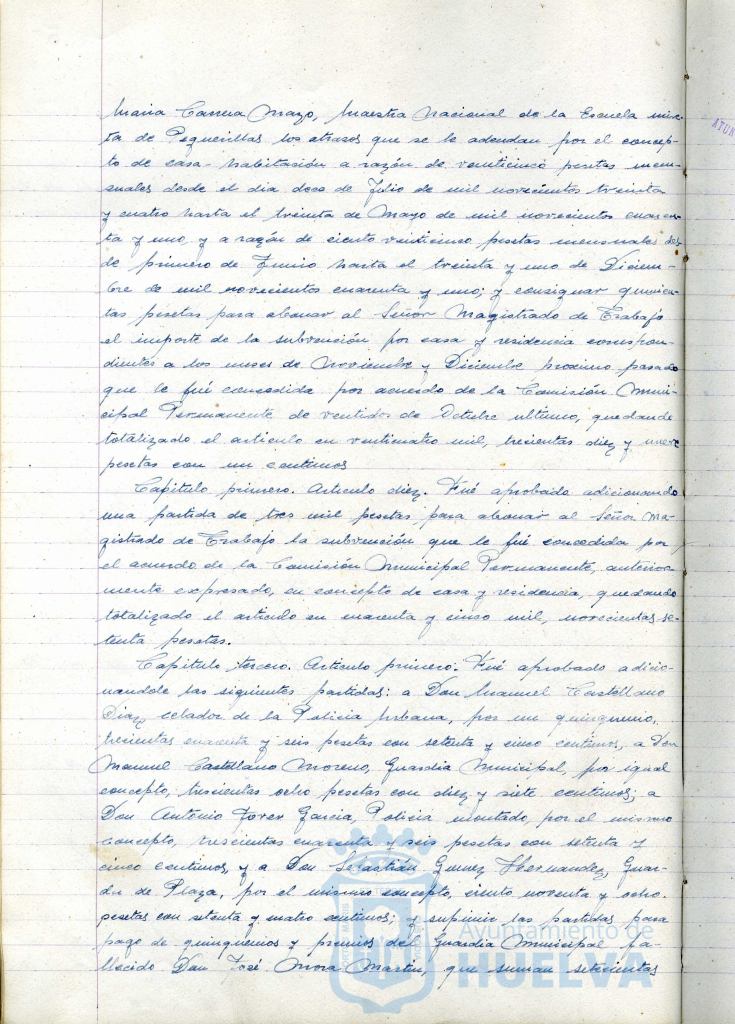 Maria Carrera Mazo, Maestra Nacional de la Escuela mix-
ta de Pequerillas los atrasos que se le adeudan por el concep-
to de casa-habitación a razón de veinticinco pesetas men-
suales desde el dia doce de Julio de mil novecientos treinta
y cuatro hasta el treinta de Mayo de mil novecientos cuaren-
ta y uno y a razón de ciento veinticinco pesetas mensuales des-
de primero de Junio hasta el treinta y uno de Diciem-
bre de mil novecientos cuarenta y uno; y consignar quinien-
tas pesetas para abonar al Señor Magistrado de Trabajo
el importe de la subvención por casa y residencia correspon-
dientes a los meses de Noviembre y Diciembre proximo pasado
que le fué concedida por acuerdo de la Comisión Muni-
cipal Permanente de ventidos de Octubre ultimo, quedando
totalizado el articulo en venticuatro mil, trecientas diez y nueve
pesetas con un centimos
Capitulo primero. Articulo diez. Fué aprobado adicionando
una partida de tres mil pesetas para abonar al Señor Ma-
gistrado de Trabajo la subvención que le fué concedida por
el acuerdo de la Comisión Municipal Permanente, anterior-
mente expresado, en concepto de casa y residencia, quedando
totalizado el articulo en cuarenta y cinco mil, novecientas se-
tenta pesetas.
Capitulo tercero. Articulo primero. Fué aprobado adicio-
nandole las siguientes partidas: a Don Manuel Castellano
Diaz, celador de la Policia Urbana, por un quinquenio,
trecientas cuarenta y seis pesetas con setenta y cinco centimos, a Don
Manuel Castellano Moreno, Guardia Municipal, por igual
concepto, trescientas ocho pesetas con diez y siete centimos; a
Don Antonio Garcia, Policia montado, por el mismo
concepto, trescientas cuarenta y seis pesetas con setenta y
cinco centimos, y a Don Sebastián Gomez Hernandez, Guar-
da de Plaza, por el mismo concepto, ciento noventa y ocho
pesetas con setenta y cuatro centimos; y suprimir las partidas para
pago de quinquenios y premios del Guardia Municipal fa-
llecido Don José Mora Martin, que suman setecientas
Ayuntamiento de
HUELVA